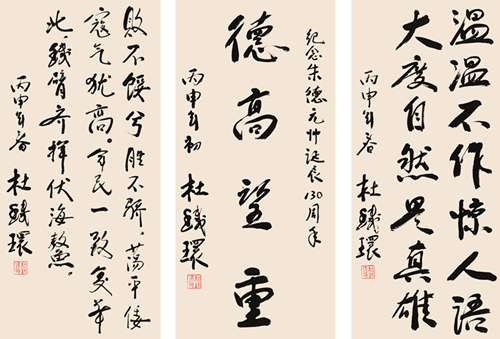 温温不作惊人语
大度自然是真雄
丙申年春 杜鐵環
纪念朱德元帅诞辰130周年
德高望重
丙申年初 杜鐵環
败不馁兮胜不骄。荡平倭
寇气犹高。军民一致复华
北，鐵臂齐挥伏海鳌。
丙申年春 杜鐵環